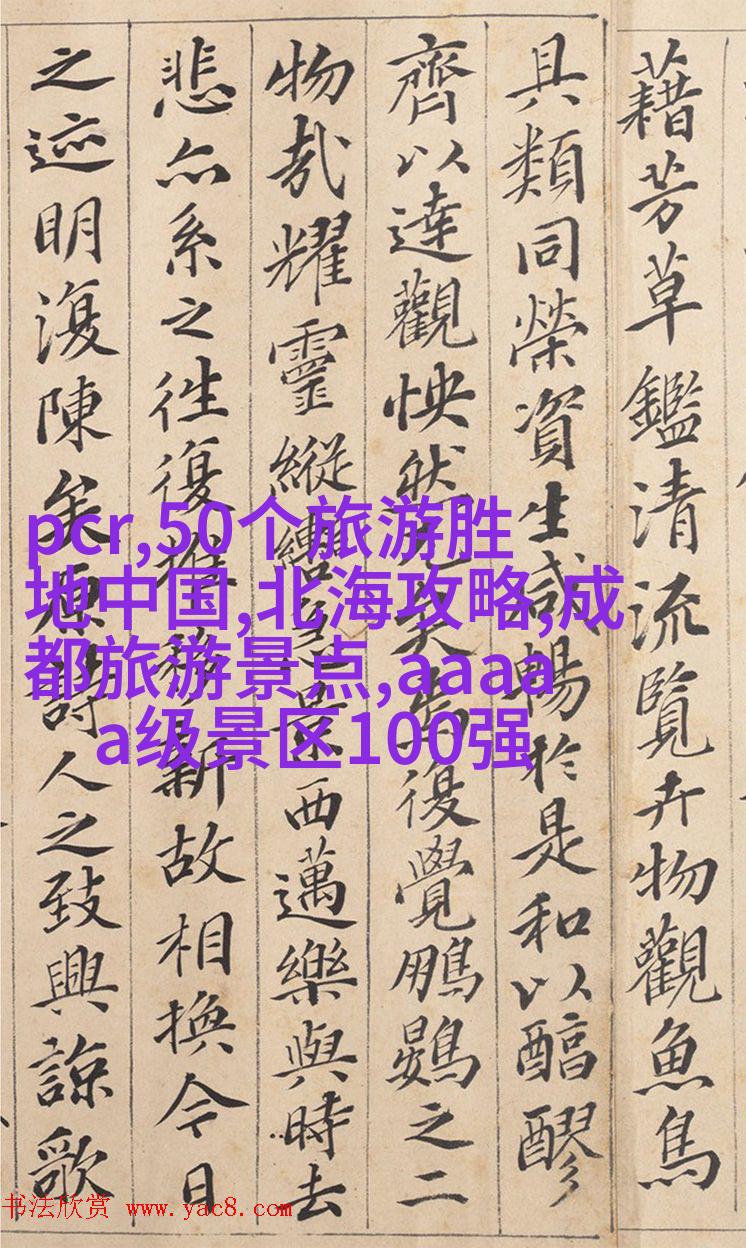 藉芳草鑑清流覽卉物觀魚鳥
具類同榮資生咸暢於是和以醕醪
齊以達觀怏然兀矣焉復覺鵬鷃之二
物哉耀靈縱轡急景西邁樂與時去
悲亦系之往復推移新故相換今日
之迹明復陳矣原詩人之致興諒歌
pcr,50个旅游胜
地中国,北海攻略,成
都旅游景点,aaaa
a级景区100强
书法欣赏 www.yac8.com